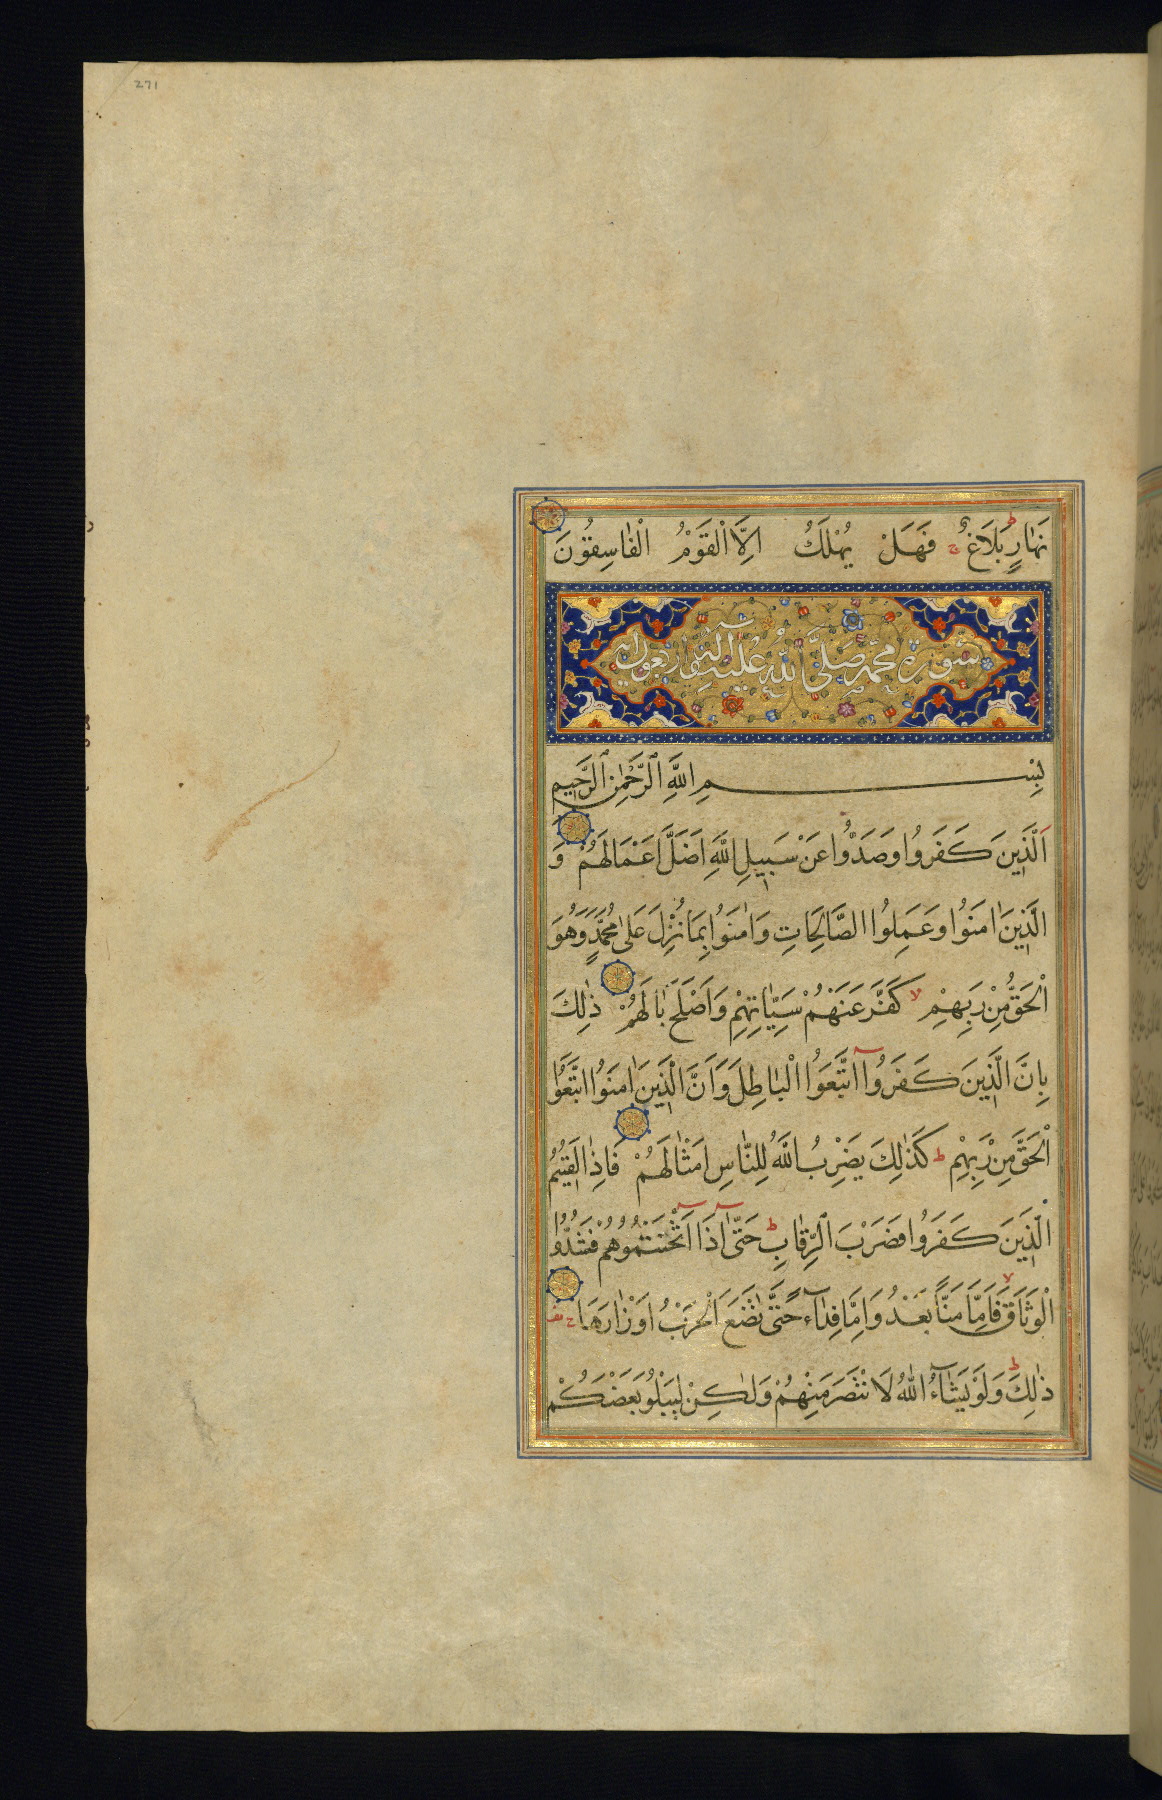 271
نَهَارٍ بَلَاغٌ فَهَلْ يُهْلَكُ اِلَّا الْقَوْمُ الْفَاسِقُونَ
سورة محمد صلى الله عليه
بِسْمِ اللَّهِ الرَّحْمٰنِ الرَّحِيمِ
اَلَّذِينَ كَفَرُوا وَصَدُّوا عَنْ سَبِيلِ اللَّهِ اَضَلَّ اَعْمَالَهُمْ وَ
الَّذِينَ اٰمَنُوا وَعَمِلُوا الصَّالِحَاتِ وَاٰمَنُوا بِمَا نُزِّلَ عَلٰى مُحَمَّدٍ وَهُوَ
الْحَقُّ مِنْ رَبِّهِمْ لا كَفَّرَ عَنْهُمْ سَيِّاٰتِهِمْ وَاَصْلَحَ بَالَهُمْ ذٰلِكَ
بِاَنَّ الَّذِينَ كَفَرُوا اتَّبَعُوا الْبَاطِلَ وَاَنَّ الَّذِينَ اٰمَنُوا اتَّبَعُوا
الْحَقَّ مِنْ رَبِّهِمْ ط كَذٰلِكَ يَضْرِبُ اللَّهُ لِلنَّاسِ اَمْثَالَهُمْ فَاِذَا لَقِيتُمُ
الَّذِينَ كَفَرُوا فَضَرْبَ الرِّقَابِ ط حَتّٰى اِذَا اَثْخَنْتُمُوهُمْ فَشُدُّوا
الْوَثَاقَ لا فَاِمَّا مَنًّا بَعْدُ وَاِمَّا فِدَاءً حَتّٰى تَضَعَ الْحَرْبُ اَوْزَارَهَا
ذٰلِكَ ط وَلَوْ يَشَاءُ اللَّهُ لَانْتَصَرَ مِنْهُمْ وَلٰكِنْ لِيَبْلُوَ بَعْضَكُمْ